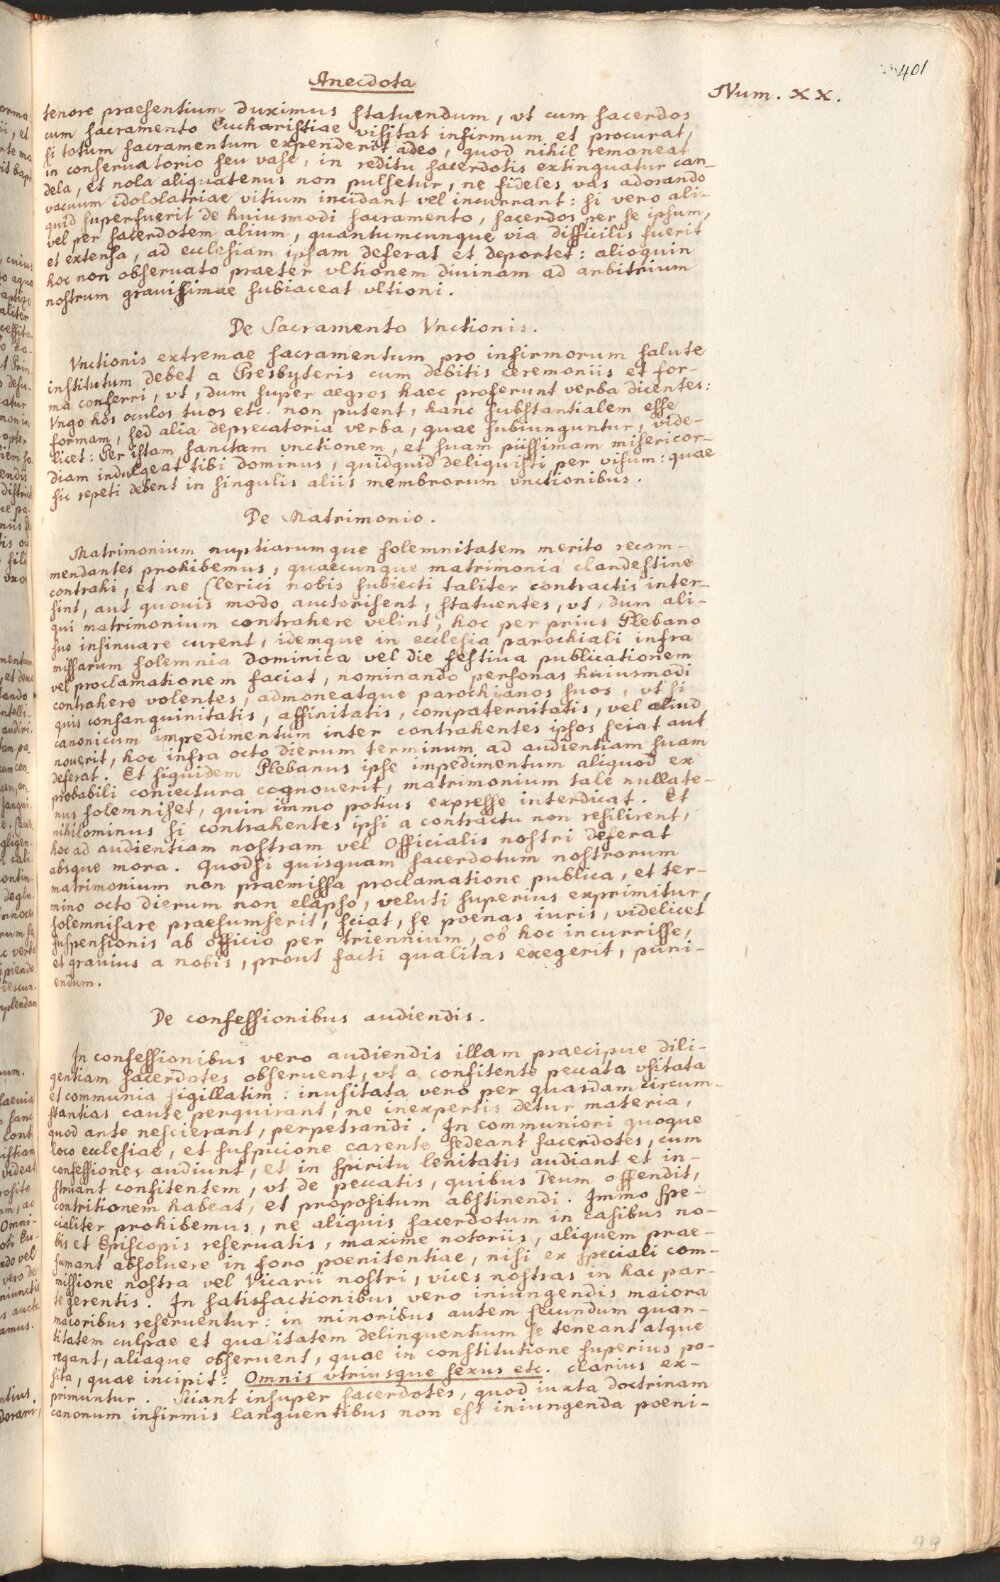 401
Anecdota
Num. XX.
tenore praesentium duximus statuendum, vt cum sacerdos
cum sacramento Eucharistiae visitat infirmum et procurat,
si totum sacramentum expenderit adeo, quod nihil remaneat
in conseruatorio seu vase, in reditu sacerdotis extinguatur can-
dela, et nola aliquatenus non pulsetur, ne fideles vas adorando
vacuum idololatriae vitium incidant vel incurrant: si vero ali-
quid superfuerit de huiusmodi sacramento, sacerdos per se ipsum,
vel per sacerdotem alium, quantumcunque via difficilis fuerit
et extensa, ad ecclesiam ipsam deferat et deportet: alioquin
hoc non obseruato praeter vltionem diuinam ad arbitrium
nostrum grauissimae subiaceat vltioni.
De Sacramento Vnctionis.
Vnctionis extremae sacramentum pro infirmorum salute
institutum debet a Presbyteris cum debitis ceremoniis et for-
ma conferri, vt, dum super aegros haec proferunt verba dicentes:
Vngo hos oculos tuos etc. non putent, hanc substantialem esse
formam, sed alia deprecatoria verba, quae subiunguntur, vide-
licet: Per istam sanctam vnctionem, et suam piissimam misericor-
diam indulgeat tibi Dominus, quidquid deliquisti per visum: quae
sic repeti debent in singulis aliis membrorum vnctionibus.
De Matrimonio.
Matrimonium nuptiarumque solemnitatem merito recom-
mendantes prohibemus, quaecunque matrimonia clandestine
contrahi, et ne Clerici nobis subiecti taliter contractis inter-
sint, aut quouis modo auctorisent, statuentes, vt, dum ali-
qui matrimonium contrahere velint, hoc per prius Plebano
suo insinuare curent, idemque in ecclesia parochiali infra
missarum solemnia Dominica vel die festiua publicationem
vel proclamationem faciat, nominando personas huiusmodi
contrahere volentes, admoneatque parochianos suos, vt si
quis consanguinitatis, affinitatis, compaternitatis, vel aliud
canonicum impedimentum inter contrahentes ipsos sciat aut
nouerit, hoc infra octo dierum terminum ad audientiam suam
deferat. Et siquidem Plebanus ipse impedimentum aliquod ex
probabili coniectura cognouerit, matrimonium tale nullate-
nus solemniset, quin immo potius expresse interdicat. Et
nihilominus si contrahentes ipsi a contractu non resilirent,
hoc ad audientiam nostram vel Officialis nostri deferat
absque mora. Quodsi quisquam sacerdotum nostrorum
matrimonium non praemissa proclamatione publica, et ter-
mino octo dierum non elapso, veluti superius exprimitur,
solemnisare praesumserit, sciat, se poenas iuris, videlicet
suspensionis ab officio per triennium, ob hoc incurrisse,
et grauius a nobis, prout facti qualitas exegerit, puni-
endum.
De confessionibus audiendis.
In confessionibus vero audiendis illam praecipue dili-
gentiam sacerdotes obseruent, vt a confitente peccata vsitata
et communia sigillatim: inusitata vero per quasdam circum-
stantias caute perquirant, ne inexpertis detur materia,
quod ante nescierant, perpetrandi. In communiori quoque
loco ecclesiae, et suspicione carente sedeant sacerdotes, cum
confessiones audiunt, et in spiritu lenitatis audiant et in-
struant confitentem, vt de peccatis, quibus Deum offendit,
contritionem habeat, et propositum abstinendi. Immo spe-
cialiter prohibemus, ne aliquis sacerdotum in casibus no-
bis et Episcopis reseruatis, maxime notoriis, aliquem prae-
sumant absoluere in foro poenitentiae, nisi ex speciali com-
missione nostra vel Vicarii nostri, vices nostras in hac par-
te gerentis. In satisfactionibus vero iniungendis maiora
maioribus reseruentur: in minoribus autem secundum quan-
titatem culpae et qualitatem delinquentium se teneant atque
regant, aliaque obseruent, quae in constitutione superius po-
sita, quae incipit: Omnis vtriusque sexus etc. clarius ex-
primuntur. Sciant insuper sacerdotes, quod iuxta doctrinam
canonum infirmis languentibus non est iniungenda poeni-
99